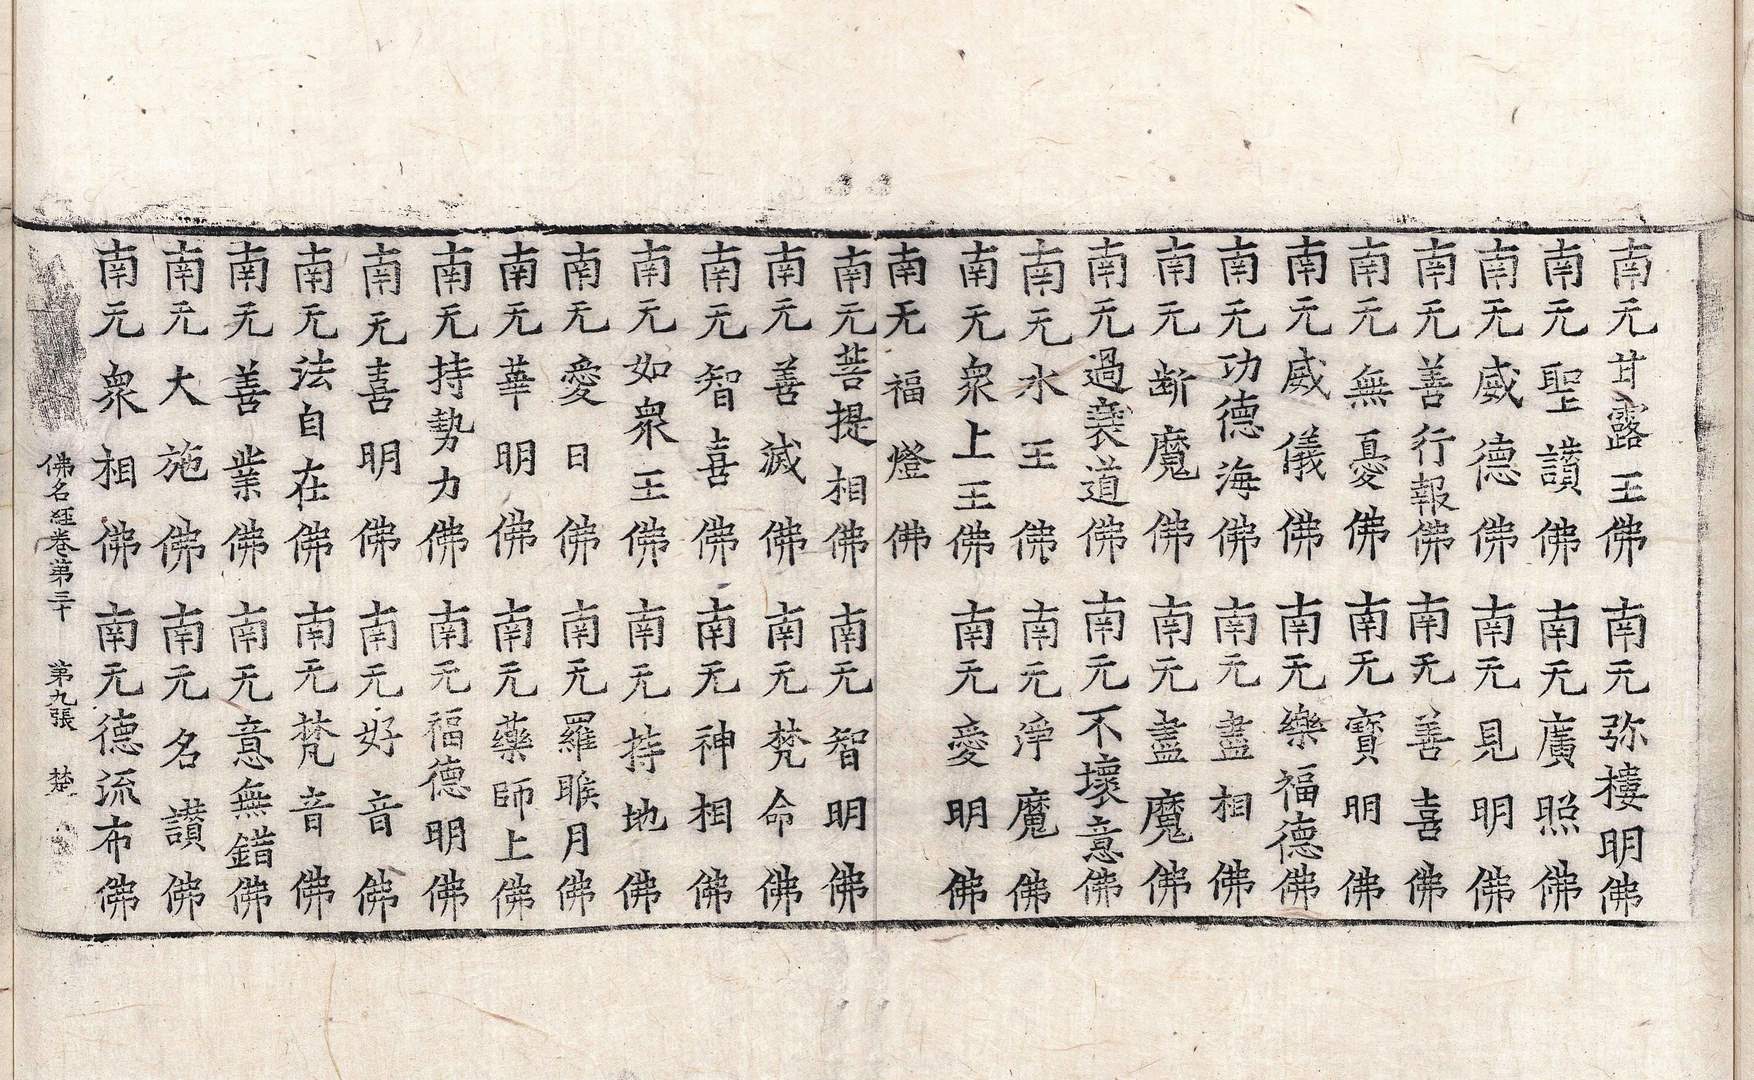 南无甘露王佛 南无弥樓明佛
南无聖讃佛 南无廣照佛
南无威德佛 南无見明佛
南无善行報佛 南无善喜佛
南无無憂佛 南无寳明佛
南无威儀佛 南无樂福德佛
南无功德海佛 南无盡相佛
南无断魔佛 南无盡魔佛
南无過衰道佛 南无不壞意佛
南无水王佛 南无淨魔佛
南无衆上王佛 南无愛明佛
南无福燈佛
南无菩提相佛 南无智明佛
南无善滅佛 南无梵命佛
南无智喜佛 南无神相佛
南无如衆王佛 南无持地佛
南无愛日佛 南无羅睺月佛
南无華明佛 南无藥師上佛
南无持勢力佛 南无福德明佛
南无喜明佛 南无好音佛
南无法自在佛 南无梵音佛
南无善業佛 南无意無錯佛
南无大施佛 南无名讃佛
南无衆相佛 南无德流布佛
佛名経卷第三十 第九張 楚